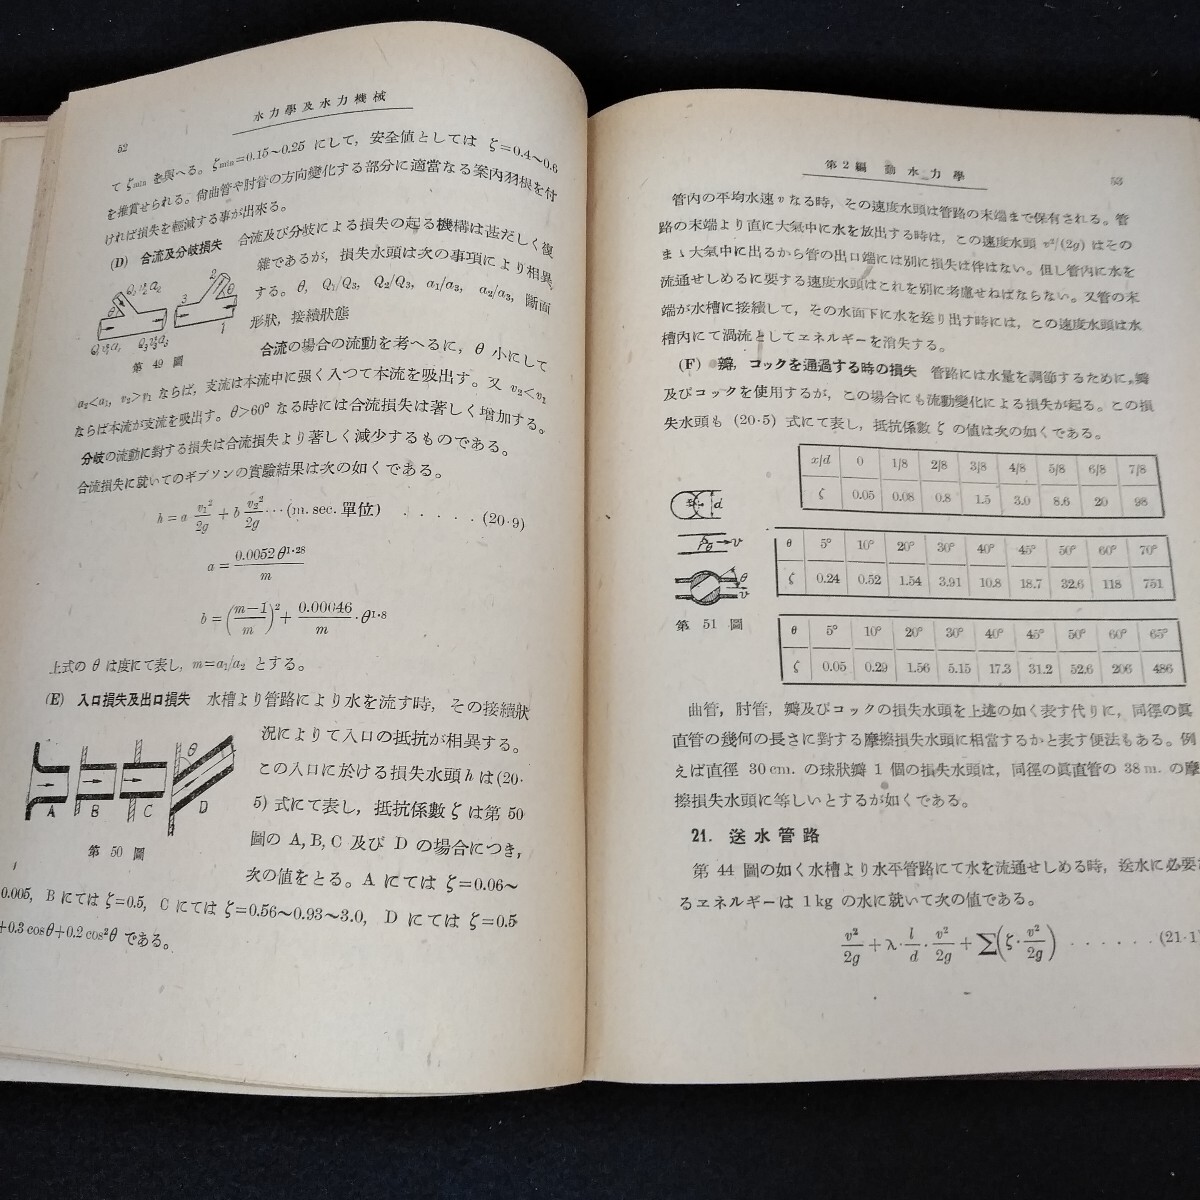 水力學及水力機械
52
て ζmin を與へる。ζmin=0.15〜0.25 にして，安全値としては ζ=0.4〜0.6
を推賞せられる。尙曲管や肘管の方向變化する部分に適當なる案內羽根を付
ければ損失を輕減する事が出來る。
(D) 合流及分岐損失 合流及び分岐による損失の起る機構は甚だしく複
雜であるが，損失水頭は次の事項により相異
する。θ, Q₁/Q₃, Q₂/Q₃, a₁/a₃, a₂/a₃, 斷面
形狀，接續狀態
第 49 圖
合流の場合の流動を考へるに，θ 小にして
a₂<a₁, v₂>v₁ ならば，支流は本流中に强く入つて本流を吸出す。又 v₂<v₁
ならば本流が支流を吸出す。θ>60° なる時には合流損失は著しく增加する。
分岐の流動に對する損失は合流損失より著しく減少するものである。
合流損失に就いてのギブソンの實驗結果は次の如くである。
h=a v₁²/2g + b v₂²/2g ‥‥(m. sec. 單位) ．．．．．(20·9)
a= 0.0052 θ1·28/m
b=((m−1)/m)²+ 0.00046/m ·θ1·8
上式の θ は度にて表し，m=a₁/a₂ とする。
(E) 入口損失及出口損失 水槽より管路により水を流す時，その接續狀
況によりて入口の抵抗が相異する。
この入口に於ける損失水頭 h は (20·
5) 式にて表し，抵抗係數 ζ は第 50
圖の A, B, C 及び D の場合につき，
次の値をとる。A にては ζ=0.06〜
A B C D θ
第 50 圖
0.005, B にては ζ=0.5, C にては ζ=0.56〜0.93〜3.0, D にては ζ=0.5
+0.3 cosθ+0.2 cos²θ である。
第 2 編 動 水 力 學
53
管內の平均水速 v なる時，その速度水頭は管路の末端まで保有される。管
路の末端より直に大氣中に水を放出する時は，この速度水頭 v²/(2g) はその
まゝ大氣中に出るから管の出口端には別に損失は伴はない。但し管內に水を
流通せしめるに要する速度水頭はこれを別に考慮せねばならない。又管の末
端が水槽に接續して，その水面下に水を送り出す時には，この速度水頭は水
槽內にて渦流としてエネルギーを消失する。
(F) 瓣，コックを通過する時の損失 管路には水量を調節するために，瓣
及びコックを使用するが，この場合にも流動變化による損失が起る。この損
失水頭も (20·5) 式にて表し，抵抗係數 ζ の値は次の如くである。
x/d 0 1/8 2/8 3/8 4/8 5/8 6/8 7/8
ζ 0.05 0.08 0.8 1.5 3.0 8.6 20 98
θ 5° 10° 20° 30° 40° 45° 50° 60° 70°
ζ 0.24 0.52 1.54 3.91 10.8 18.7 32.6 118 751
第 51 圖
θ 5° 10° 20° 30° 40° 45° 50° 60° 65°
ζ 0.05 0.29 1.56 5.15 17.3 31.2 52.6 206 486
曲管，肘管，瓣及びコックの損失水頭を上述の如く表す代りに，同徑の眞
直管の幾何の長さに對する摩擦損失水頭に相當するかと表す便法もある。例
えば直徑 30 cm. の球狀瓣 1 個の損失水頭は，同徑の眞直管の 38 m. の摩
擦損失水頭に等しいとするが如くである。
21. 送水管路
第 44 圖の如く水槽より水平管路にて水を流通せしめる時，送水に必要な
るエネルギーは 1 kg の水に就いて次の値である。
v²/2g +λ· l/d · v²/2g +∑(ζ· v²/2g) ．．．．．．(21·1)